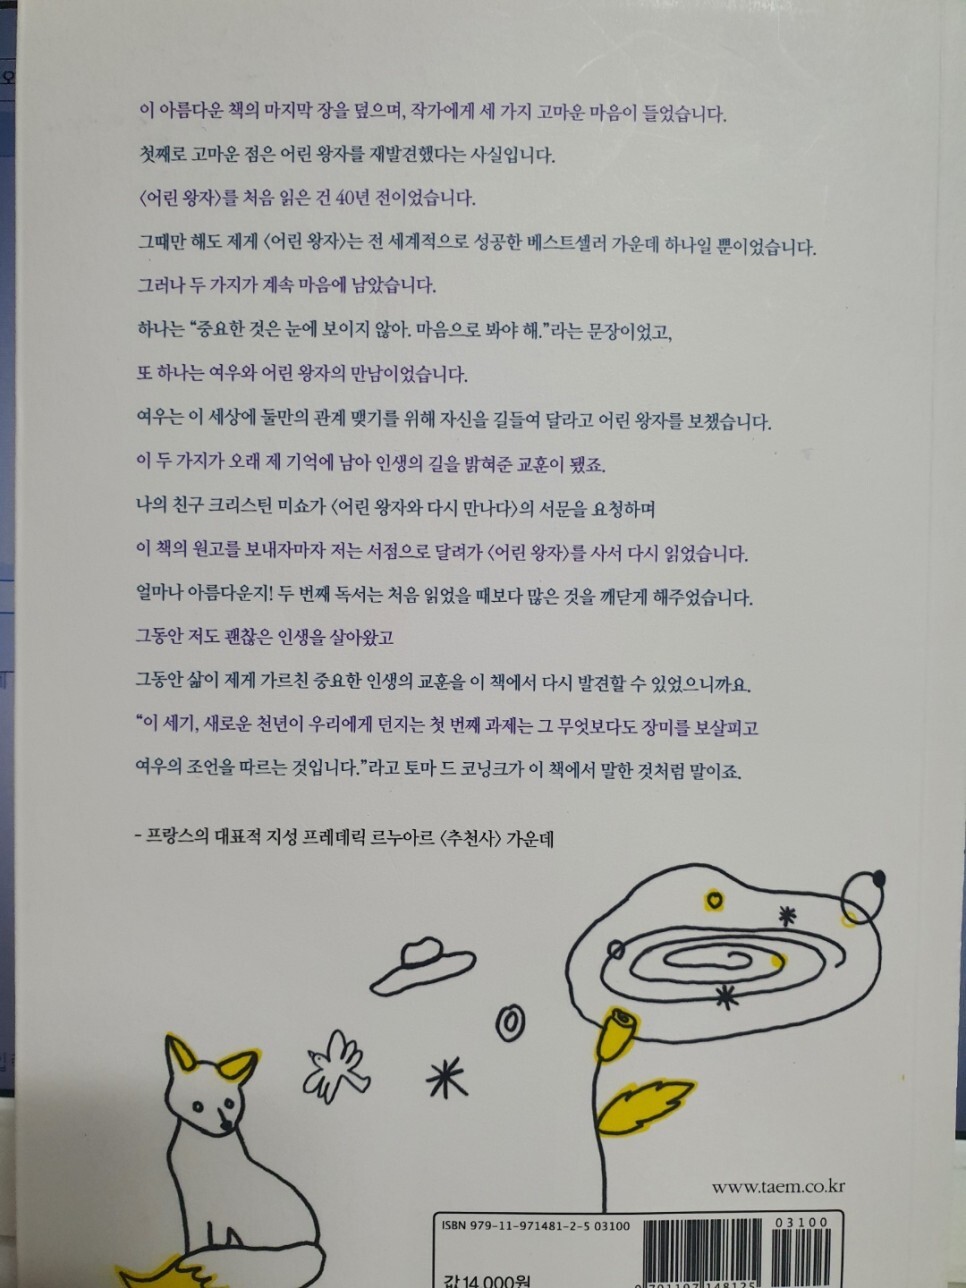 이 아름다운 책의 마지막 장을 덮으며, 작가에게 세 가지 고마운 마음이 들었습니다.
첫째로 고마운 점은 어린 왕자를 재발견했다는 사실입니다.
〈어린 왕자〉를 처음 읽은 건 40년 전이었습니다.
그때만 해도 제게 〈어린 왕자〉는 전 세계적으로 성공한 베스트셀러 가운데 하나일 뿐이었습니다.
그러나 두 가지가 계속 마음에 남았습니다.
하나는 “중요한 것은 눈에 보이지 않아. 마음으로 봐야 해.”라는 문장이었고,
또 하나는 여우와 어린 왕자의 만남이었습니다.
여우는 이 세상에 둘만의 관계 맺기를 위해 자신을 길들여 달라고 어린 왕자를 보챘습니다.
이 두 가지가 오래 제 기억에 남아 인생의 길을 밝혀준 교훈이 됐죠.
나의 친구 크리스틴 미쇼가 〈어린 왕자와 다시 만나다〉의 서문을 요청하며
이 책의 원고를 보내자마자 저는 서점으로 달려가 〈어린 왕자〉를 사서 다시 읽었습니다.
얼마나 아름다운지! 두 번째 독서는 처음 읽었을 때보다 많은 것을 깨닫게 해주었습니다.
그동안 저도 괜찮은 인생을 살아왔고
그동안 삶이 제게 가르친 중요한 인생의 교훈을 이 책에서 다시 발견할 수 있었으니까요.
“이 세기, 새로운 천년이 우리에게 던지는 첫 번째 과제는 그 무엇보다도 장미를 보살피고
여우의 조언을 따르는 것입니다.”라고 토마 드 코닝크가 이 책에서 말한 것처럼 말이죠.
- 프랑스의 대표적 지성 프레데릭 르누아르 〈추천사〉 가운데
www.taem.co.kr
ISBN 979-11-971481-2-5 03100
03100
9 791197 148125
값 14,000원